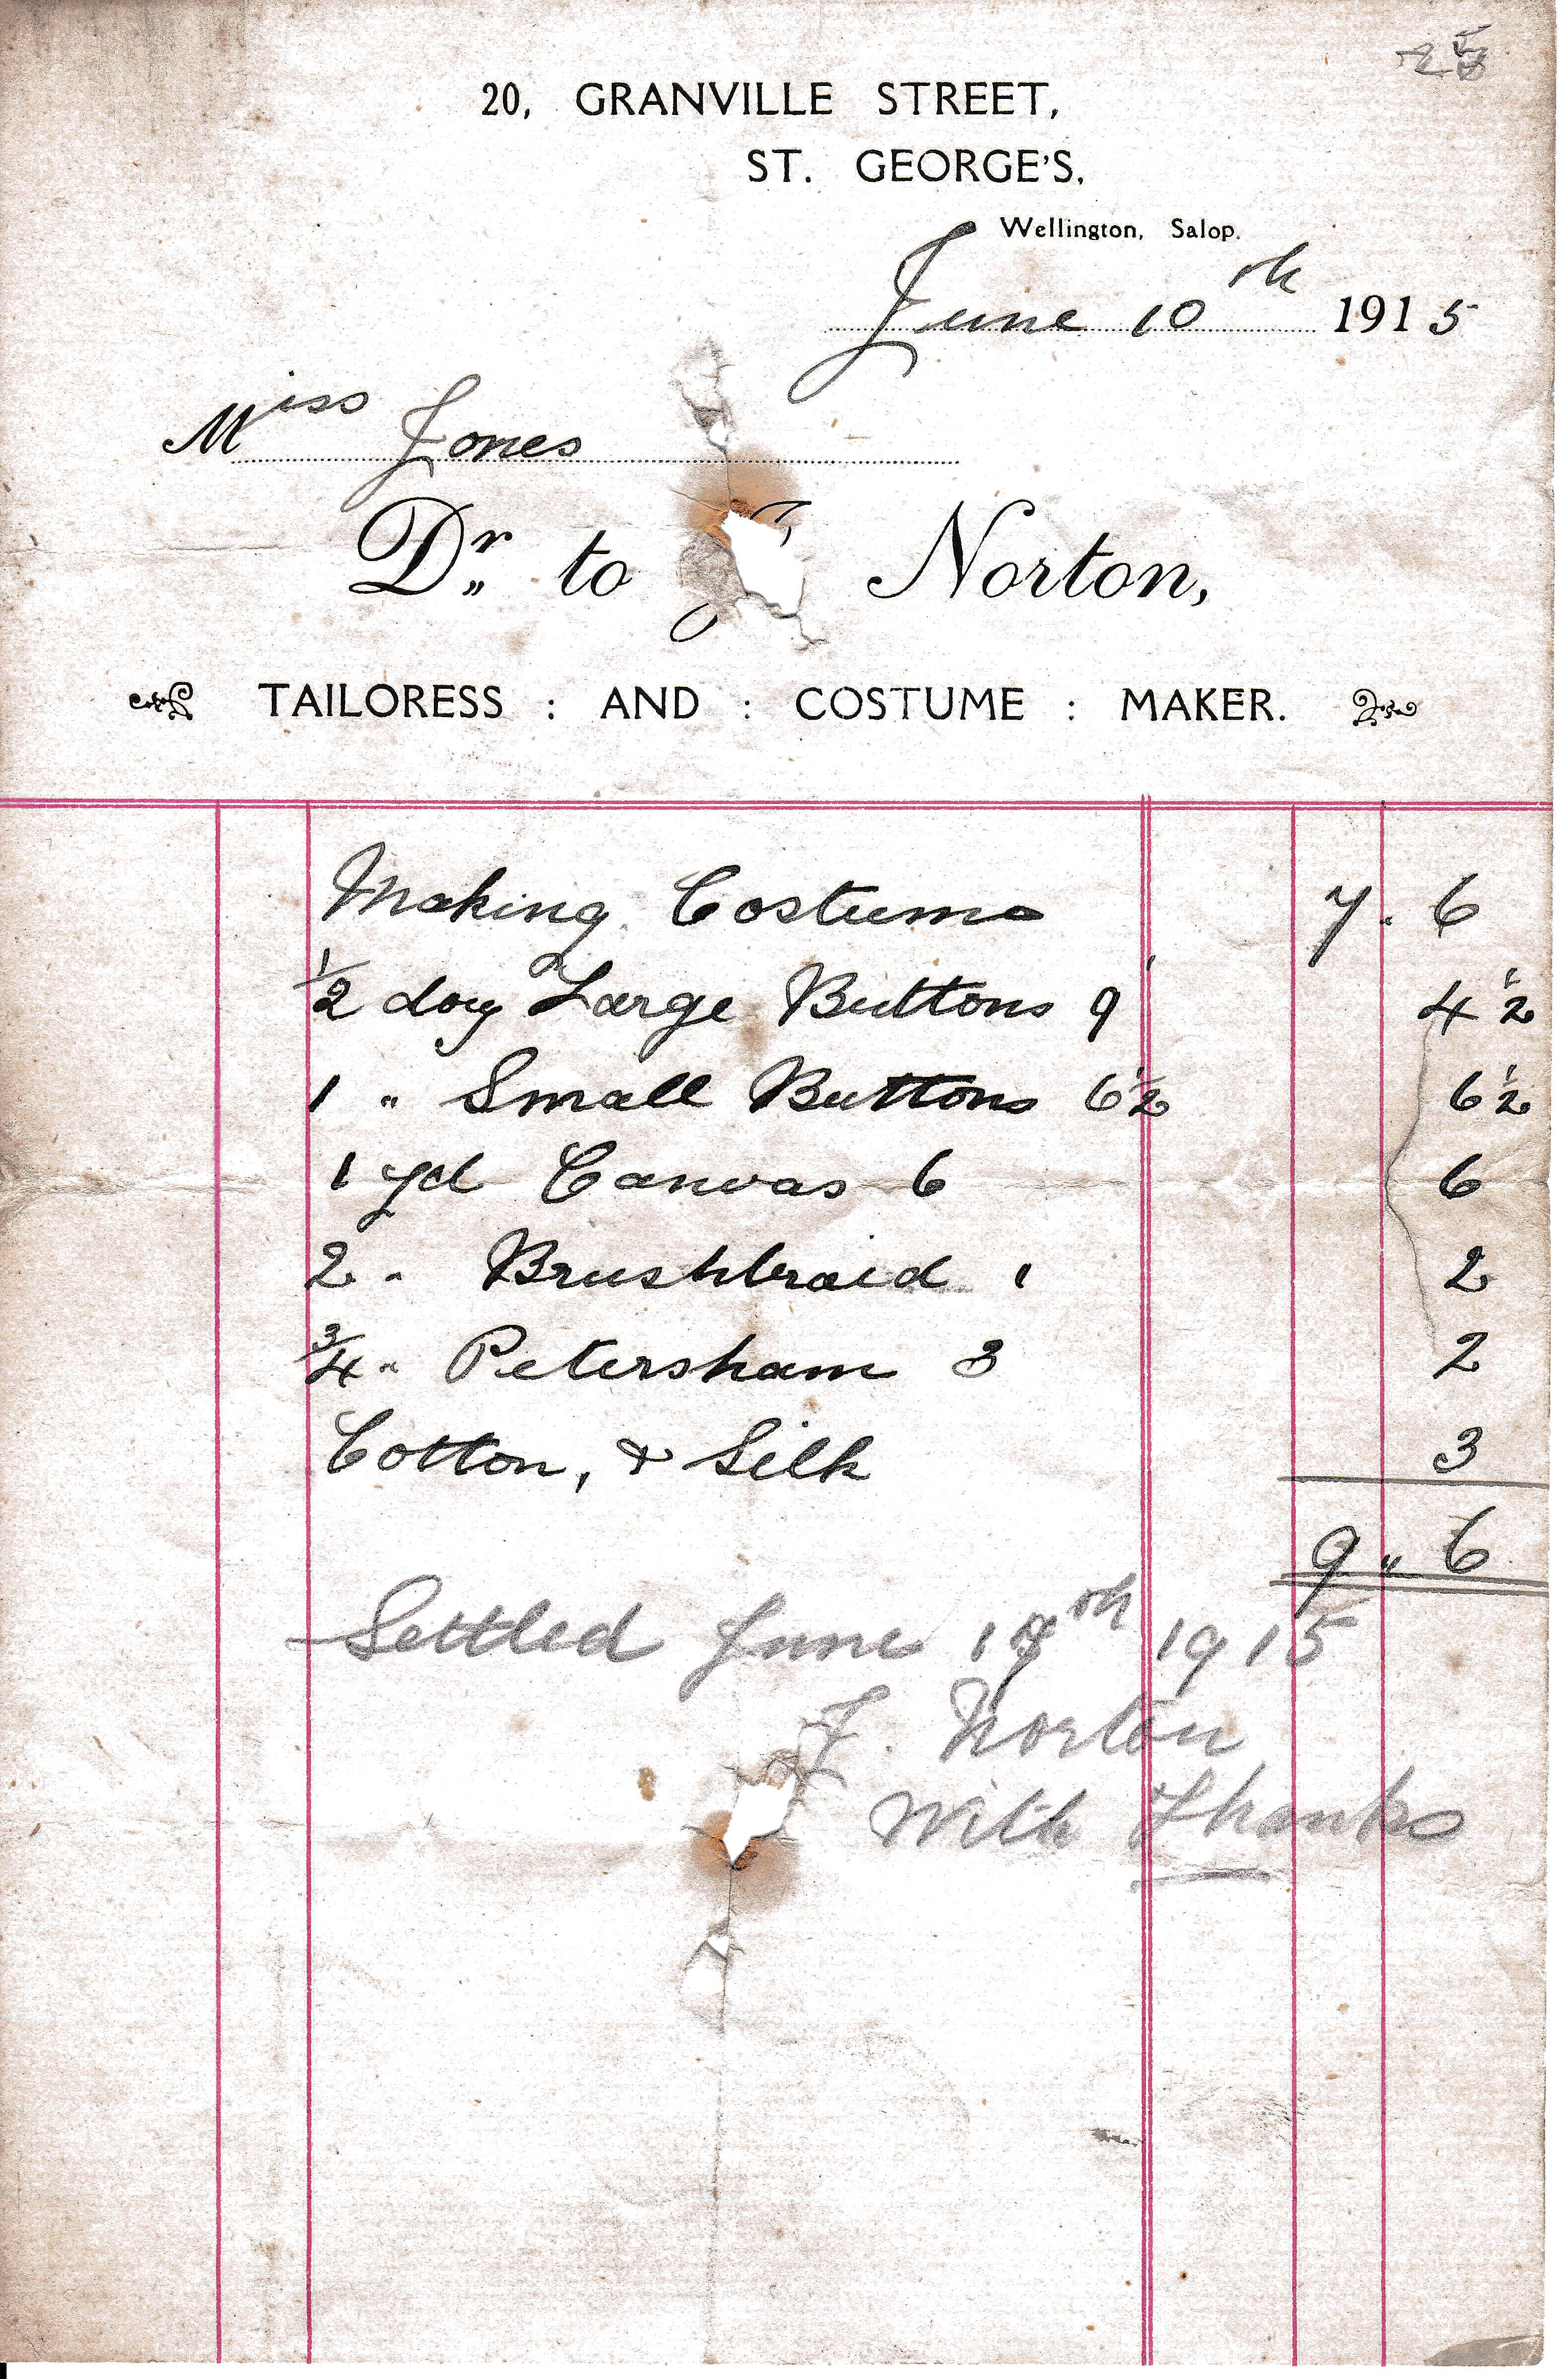 20, GRANVILLE STREET,
ST. GEORGE'S,
Wellington, Salop.
June 10th 1915
Miss Jones
Dr. to Norton,
TAILORESS : AND : COSTUME : MAKER.
Making Costume 7. 6
1/2 doz Large Buttons 9 4 1/2
1 " Small Buttons 6 1/2 6 1/2
1 yd Canvas 6 6
2 " Brushbraid 1 2
3/4 " Petersham 3 2
Cotton, & Silk 3
9 " 6
Settled June 1915
F. Norton
With Thanks